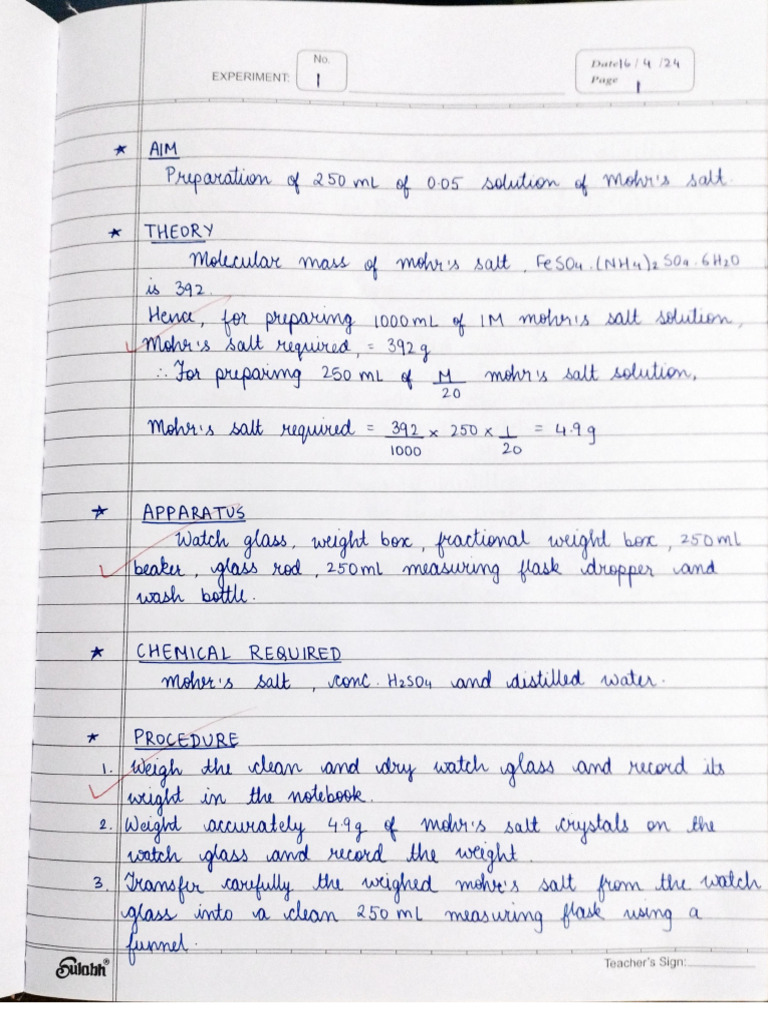 No.
EXPERIMENT: 1
Date 16 / 4 / 24
Page 1
* AIM
Preparation of 250 mL of 0.05 solution of Mohr's salt.
* THEORY
Molecular mass of mohr's salt, FeSO4.(NH4)2SO4.6H2O
is 392.
Hence, for preparing 1000mL of 1M mohr's salt solution,
Mohr's salt required, = 392g
∴ For preparing 250 mL of M/20 mohr's salt solution,
Mohr's salt required = 392/1000 × 250 × 1/20 = 4.9 g
* APPARATUS
Watch glass, weight box, fractional weight box, 250ml
beaker, glass rod, 250ml measuring flask dropper and
wash bottle.
* CHEMICAL REQUIRED
Mohr's salt, conc. H2SO4 and distilled water.
* PROCEDURE
1. Weigh the clean and dry watch glass and record its
weight in the notebook.
2. Weight accurately 4.9g of mohr's salt crystals on the
watch glass and record the weight.
3. Transfer carefully the weighed mohr's salt from the watch
glass into a clean 250 mL measuring flask using a
funnel.
Sulabh®
Teacher's Sign: